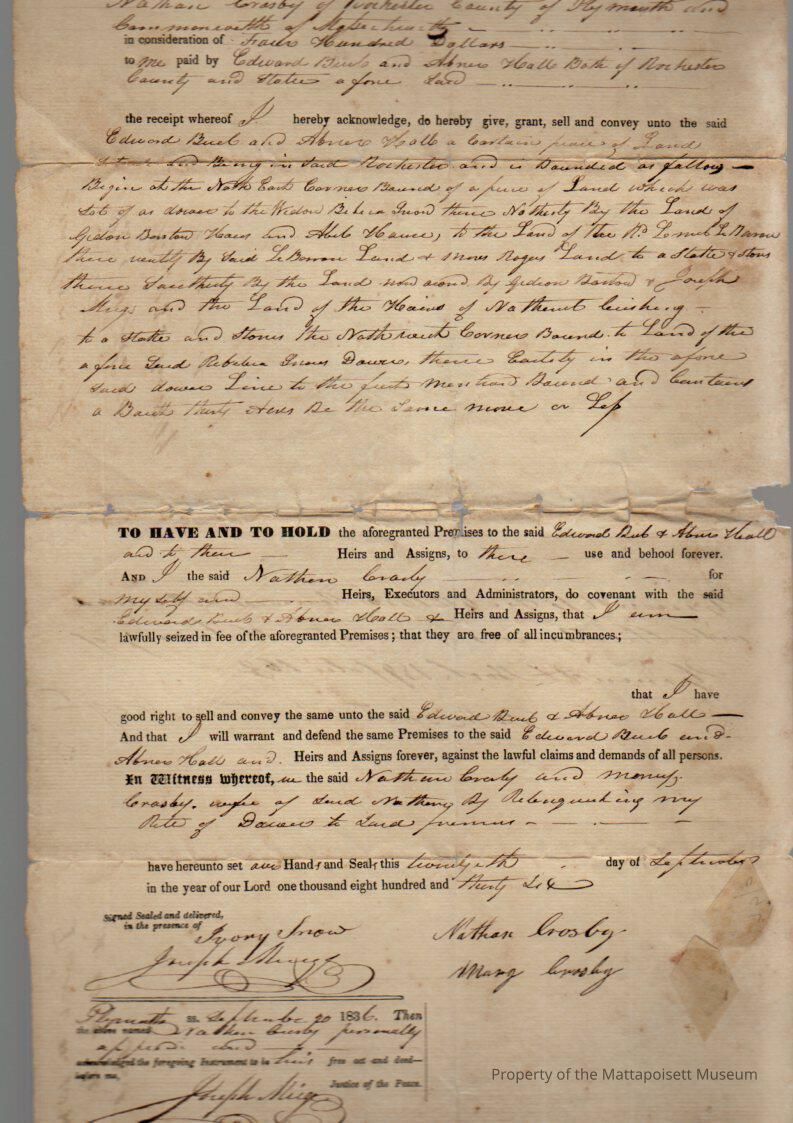 Nathan Crosby of Rochester County of Plymouth and
Commonwealth of
in consideration of Four Hundred Dollars
to me paid by Edward Buel and Abner Hall Both of Rochester
County and State a fore Said
the receipt whereof I hereby acknowledge, do hereby give, grant, sell and convey unto the said
Edward Buel and Abner Hall a Certain piece of Land
and Being in Said Rochester and is Bounded as follows
Begin at the North East Corner Bound of a piece of Land which was
Sot of as dower to the Widow Snow thence Notherly By the Land of
Gideon Barston and Hall to the Land of the
thence By Said LeBarron Land & Moses Rogers Land to a Stake & Stons
thence Southerly By the Land now By Gideon Barstow & Joseph
Meigs and the Land of the of Cushing
to a Stake and Stones the Corner Bound to Land of the
a fore Said Dower, thence in the afore
Said dower Line to the first mentiond Bound and Contains
a Bout thirty Acres Be the Same more or Less
TO HAVE AND TO HOLD the aforegranted Premises to the said Edward Buel & Abner Hall
and to their Heirs and Assigns, to there use and behoof forever.
AND I the said Nathan Crosby for
my self and Heirs, Executors and Administrators, do covenant with the said
Edward Buel & Abner Hall & Heirs and Assigns, that I am
lawfully seized in fee of the aforegranted Premises; that they are free of all incumbrances;
that I have
good right to sell and convey the same unto the said Edward Buel & Abner Hall
And that I will warrant and defend the same Premises to the said Edward Buel and
Abner Hall and. Heirs and Assigns forever, against the lawful claims and demands of all persons.
In Witness whereof, we the said Nathan Crosby and
Crosby. wife of Said Nathan By Relenquishing my
Rite of Dower to Said premises
have hereunto set our Hands and Seals this twentyeth day of September
in the year of our Lord one thousand eight hundred and thirty Six
Signed Sealed and delivered,
in the presence of
Ivory Snow
Joseph Meigs
Nathan Crosby
Mary Crosby
Plymouth ss. September 20 1836. Then
the above named Nathan Crosby personally
and
acknowledged the foregoing Instrument to be his free act and deed—
before me,
Joseph Meigs Justice of the Peace.
Property of the Mattapoisett Museum